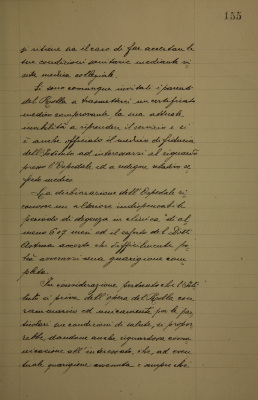 155
si ritiene sia il caso di far accertare le
sue condizioni sanitarie mediante vi
sita medica collegiale.
Si sono comunque invitati i parenti
del Rolla a trasmetterci un certificato
medico comprovante la sua attuale
inabilità a riprendere il servizio e si
è anche officiato il medico di fiducia
dell'Istituto ad interessarsi al riguardo
presso l'Ospedale ed a redigere relativo re
ferto medico.
La dichiarazione dell'Ospedale ri
conosce un ulteriore indispensabile
periodo di degenza in clinica "di al
meno 6 o 7 mesi ed il referto del Dott.
accenna che difficilmente po
trà aversi una guarigione com
pleta.
In considerazione pertanto che l'Isti
tuto si priva dell'opera del Rolla con
rammarico ed unicamente per le par
ticolari sue condizioni di salute, si propor
rebbe dandone anche riguardosa comu
nicazione all'interessato, che, ad even
tuale guarigione avvenuta e sempre che